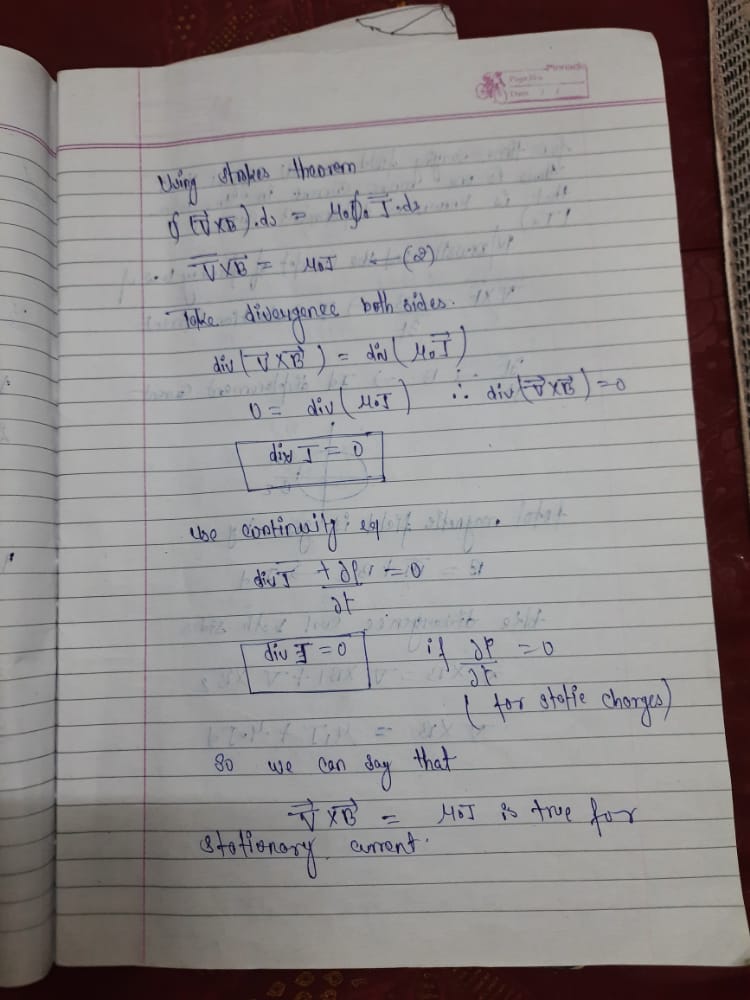 Page No.
Date / /
Using stokes theorem
∮(∇⃗×B⃗).ds = μ₀∮ J⃗.ds
∴ ∇⃗×B⃗ = μ₀J ←(2)
Take divergence both sides.
div(∇⃗×B⃗) = div(μ₀J⃗)
0 = div(μ₀J) ∴ div(∇⃗×B⃗)=0
div J = 0
Use continuity eq.
div J + ∂ρ/∂t = 0
div J = 0 if ∂ρ/∂t = 0
( for static charges)
So we can say that
∇⃗×B⃗ = μ₀J is true for
stationary current.